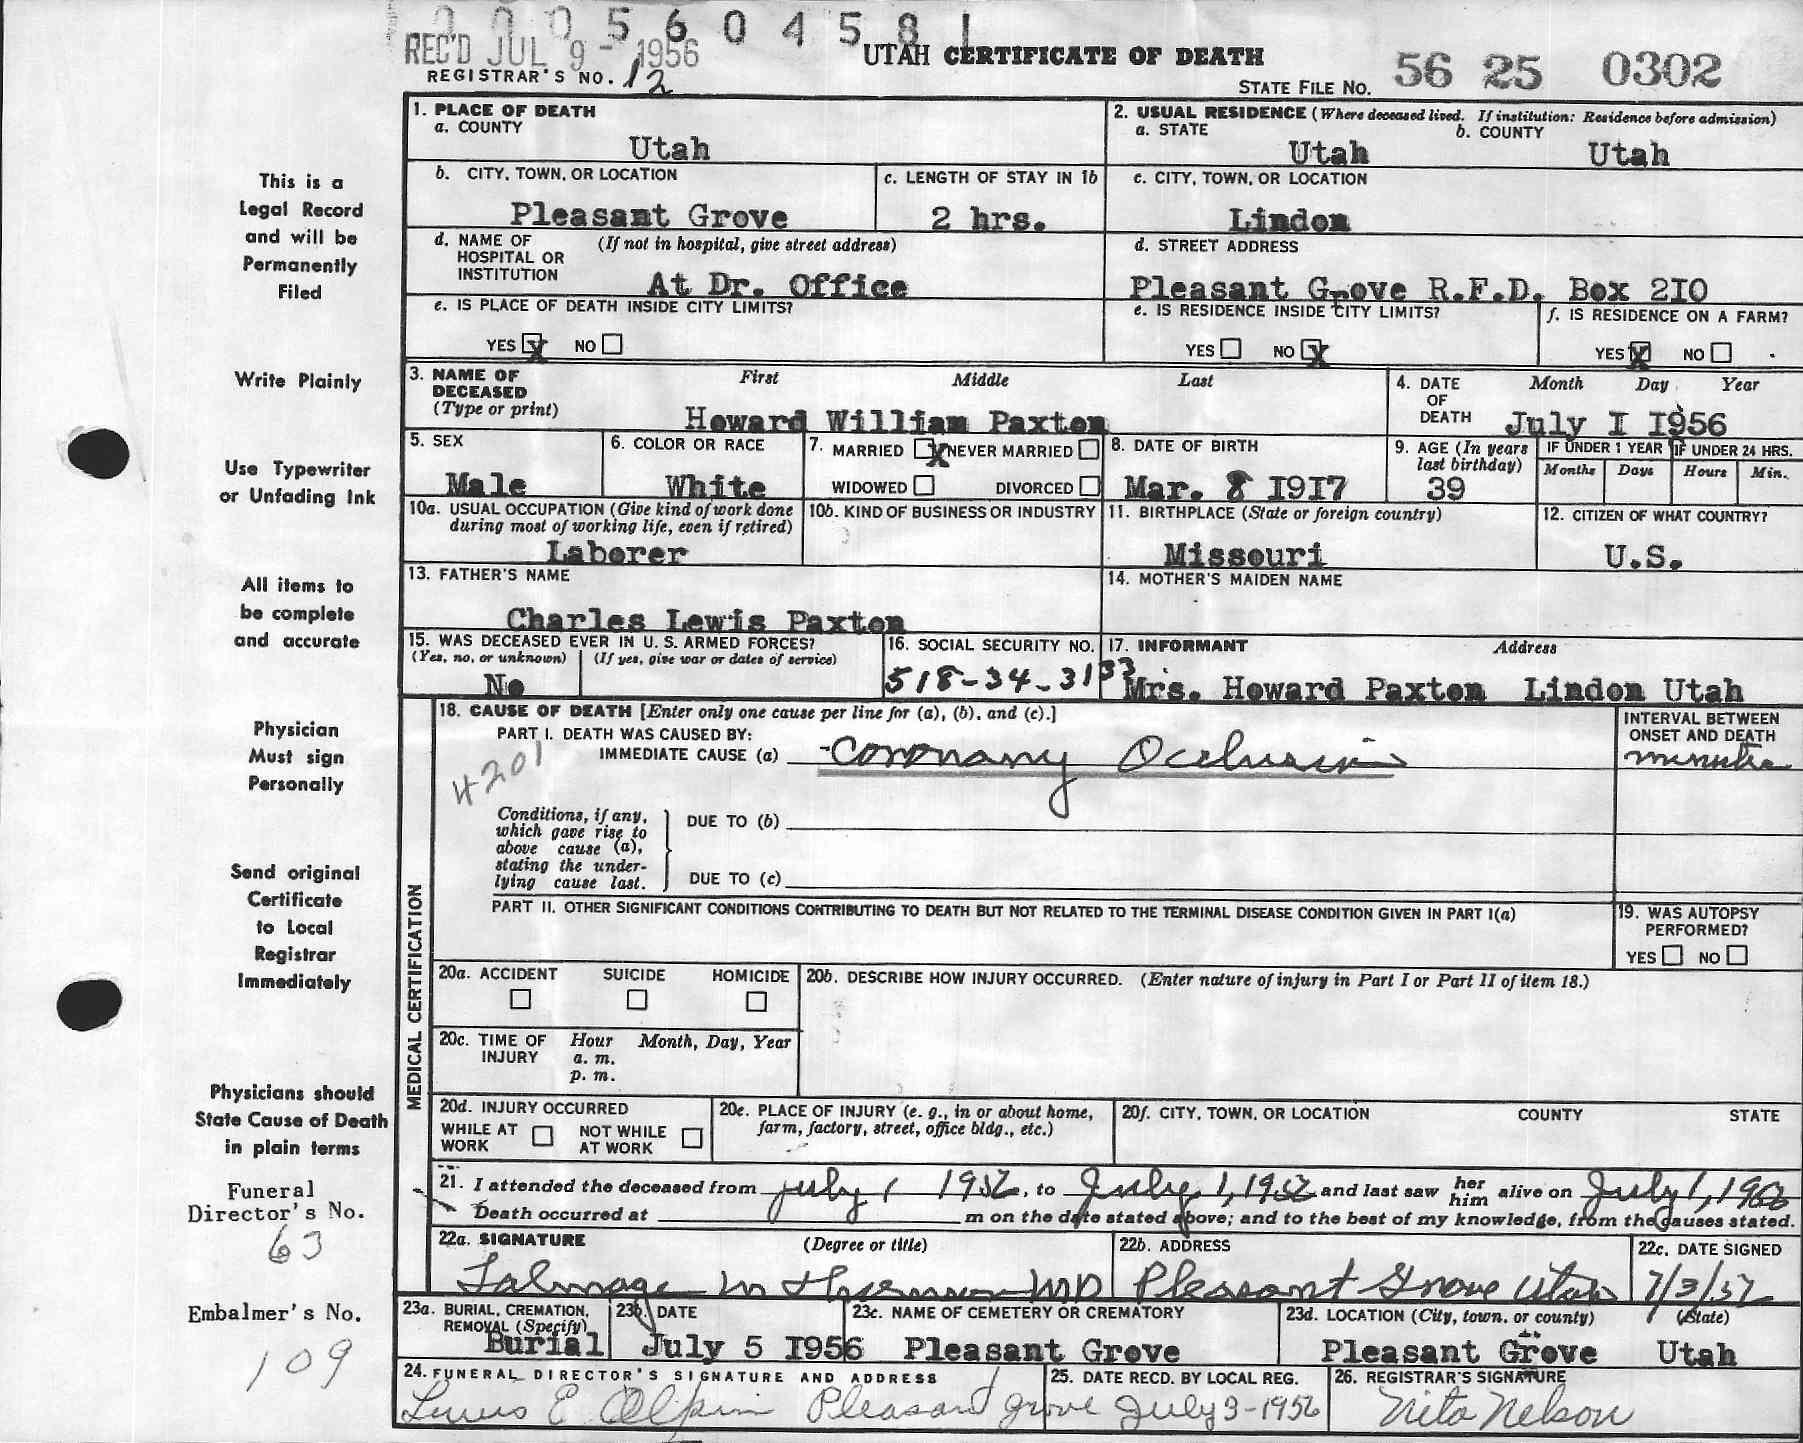 0 0 0 5 6 0 4 5 8 1
REC'D JUL 9 - 1956
UTAH CERTIFICATE OF DEATH
REGISTRAR'S NO. 12
STATE FILE NO. 56 25 0302
1. PLACE OF DEATH
a. COUNTY
Utah
2. USUAL RESIDENCE (Where deceased lived. If institution: Residence before admission)
a. STATE b. COUNTY
Utah Utah
b. CITY, TOWN, OR LOCATION
Pleasant Grove
c. LENGTH OF STAY IN 1b
2 hrs.
c. CITY, TOWN, OR LOCATION
Lindon
d. NAME OF (If not in hospital, give street address)
HOSPITAL OR
INSTITUTION At Dr. Office
d. STREET ADDRESS
Pleasant Grove R.F.D. Box 2I0
e. IS PLACE OF DEATH INSIDE CITY LIMITS?
YES X NO
e. IS RESIDENCE INSIDE CITY LIMITS?
YES NO X
f. IS RESIDENCE ON A FARM?
YES X NO
3. NAME OF DECEASED (Type or print)
First Middle Last
Howard William Paxton
4. DATE OF DEATH
Month Day Year
July I I956
5. SEX
Male
6. COLOR OR RACE
White
7. MARRIED X NEVER MARRIED
WIDOWED DIVORCED
8. DATE OF BIRTH
Mar. 8 I9I7
9. AGE (In years last birthday)
39
IF UNDER 1 YEAR IF UNDER 24 HRS.
Months Days Hours Min.
10a. USUAL OCCUPATION (Give kind of work done
during most of working life, even if retired)
Laborer
10b. KIND OF BUSINESS OR INDUSTRY
11. BIRTHPLACE (State or foreign country)
Missouri
12. CITIZEN OF WHAT COUNTRY?
U.S.
13. FATHER'S NAME
Charles Lewis Paxton
14. MOTHER'S MAIDEN NAME
15. WAS DECEASED EVER IN U. S. ARMED FORCES?
(Yes, no, or unknown) (If yes, give war or dates of service)
No
16. SOCIAL SECURITY NO.
518-34-3133
17. INFORMANT Address
Mrs. Howard Paxton Lindon Utah
MEDICAL CERTIFICATION
18. CAUSE OF DEATH [Enter only one cause per line for (a), (b), and (c).]
PART I. DEATH WAS CAUSED BY:
IMMEDIATE CAUSE (a) Coronary Occlusion
4201
INTERVAL BETWEEN
ONSET AND DEATH
minutes
Conditions, if any,
which gave rise to
above cause (a),
stating the under-
lying cause last.
DUE TO (b)
DUE TO (c)
PART II. OTHER SIGNIFICANT CONDITIONS CONTRIBUTING TO DEATH BUT NOT RELATED TO THE TERMINAL DISEASE CONDITION GIVEN IN PART I(a)
19. WAS AUTOPSY
PERFORMED?
YES NO
20a. ACCIDENT SUICIDE HOMICIDE
20b. DESCRIBE HOW INJURY OCCURRED. (Enter nature of injury in Part I or Part II of item 18.)
20c. TIME OF INJURY
Hour Month, Day, Year
a. m.
p. m.
20d. INJURY OCCURRED
WHILE AT WORK NOT WHILE AT WORK
20e. PLACE OF INJURY (e. g., in or about home,
farm, factory, street, office bldg., etc.)
20f. CITY, TOWN, OR LOCATION COUNTY STATE
21. I attended the deceased from July 1 1956, to July 1, 1956 and last saw her him alive on July 1, 1956
Death occurred at m on the date stated above; and to the best of my knowledge, from the causes stated.
22a. SIGNATURE (Degree or title)
MD
22b. ADDRESS
Pleasant Grove Utah
22c. DATE SIGNED
7/3/56
23a. BURIAL, CREMATION,
REMOVAL (Specify)
Burial
23b. DATE
July 5 I956
23c. NAME OF CEMETERY OR CREMATORY
Pleasant Grove
23d. LOCATION (City, town, or county) (State)
Pleasant Grove Utah
24. FUNERAL DIRECTOR'S SIGNATURE AND ADDRESS
E Olpin Pleasant Grove
25. DATE RECD. BY LOCAL REG.
July 3-1956
26. REGISTRAR'S SIGNATURE
Nita Nelson
This is a
Legal Record
and will be
Permanently
Filed
Write Plainly
Use Typewriter
or Unfading Ink
All items to
be complete
and accurate
Physician
Must sign
Personally
Send original
Certificate
to Local
Registrar
Immediately
Physicians should
State Cause of Death
in plain terms
Funeral
Director's No.
63
Embalmer's No.
109